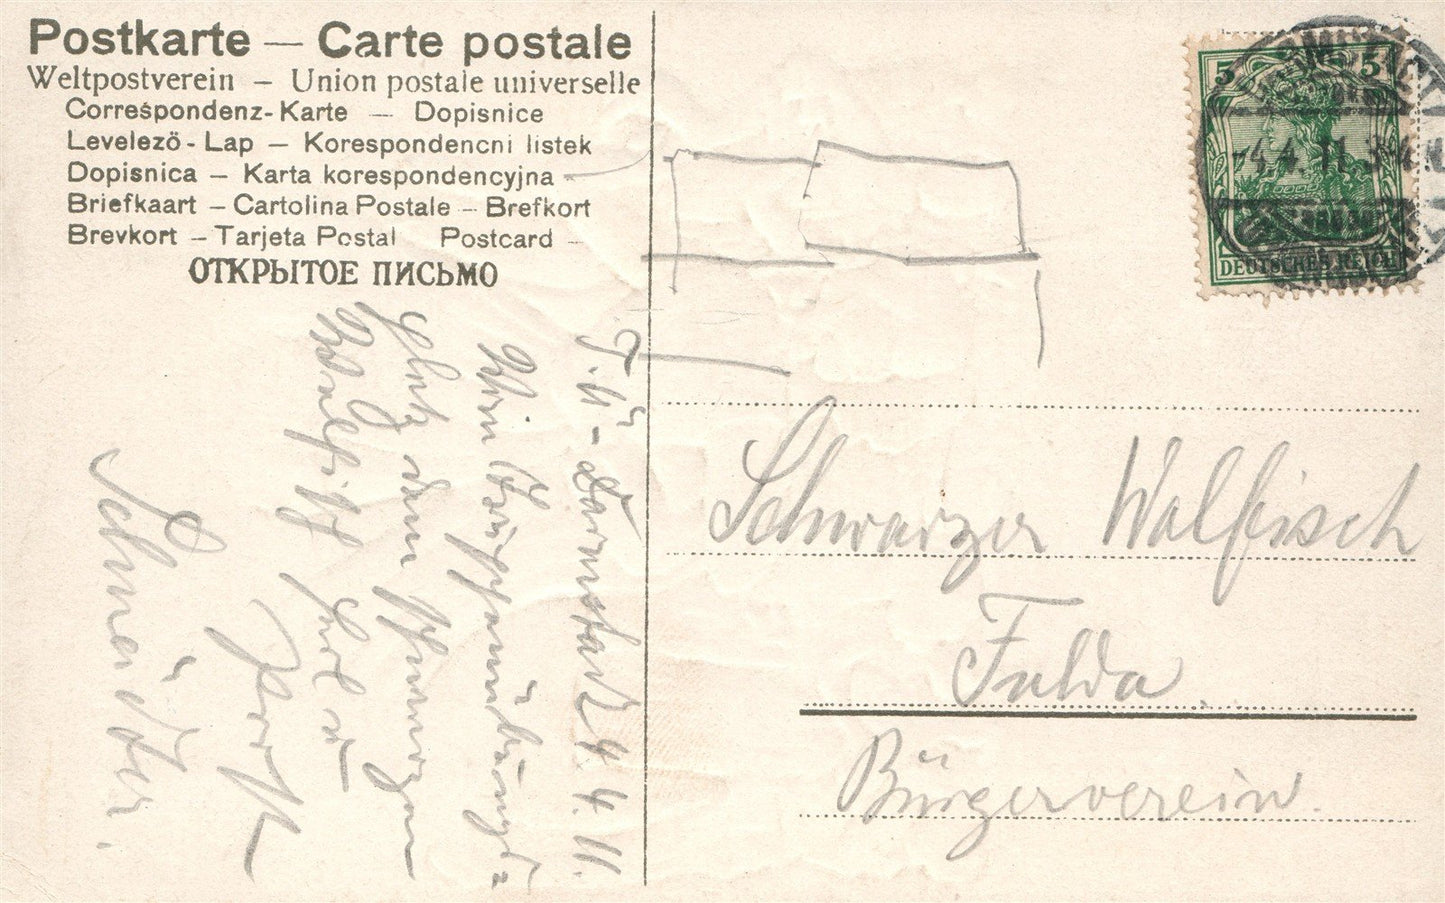 Postkarte — Carte postale
Weltpostverein — Union postale universelle
Correspondenz-Karte — Dopisnice
Levelező-Lap — Korespondencni listek
Dopisnica — Karta korespondencyjna —
Briefkaart — Cartolina Postale — Brefkort
Brevkort — Tarjeta Postal Postcard —
ОТКРЫТОЕ ПИСЬМО
5 5
4.4.11
DEUTSCHES REICH
Schwarzer Walfisch
Fulda
Bürgerverein.
Darmstadt 4.4.11.
dem schwarzen
Walfisch
Prost
Schneider.